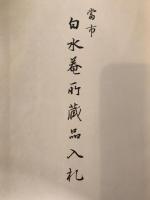 當市
白水菴所藏品入札